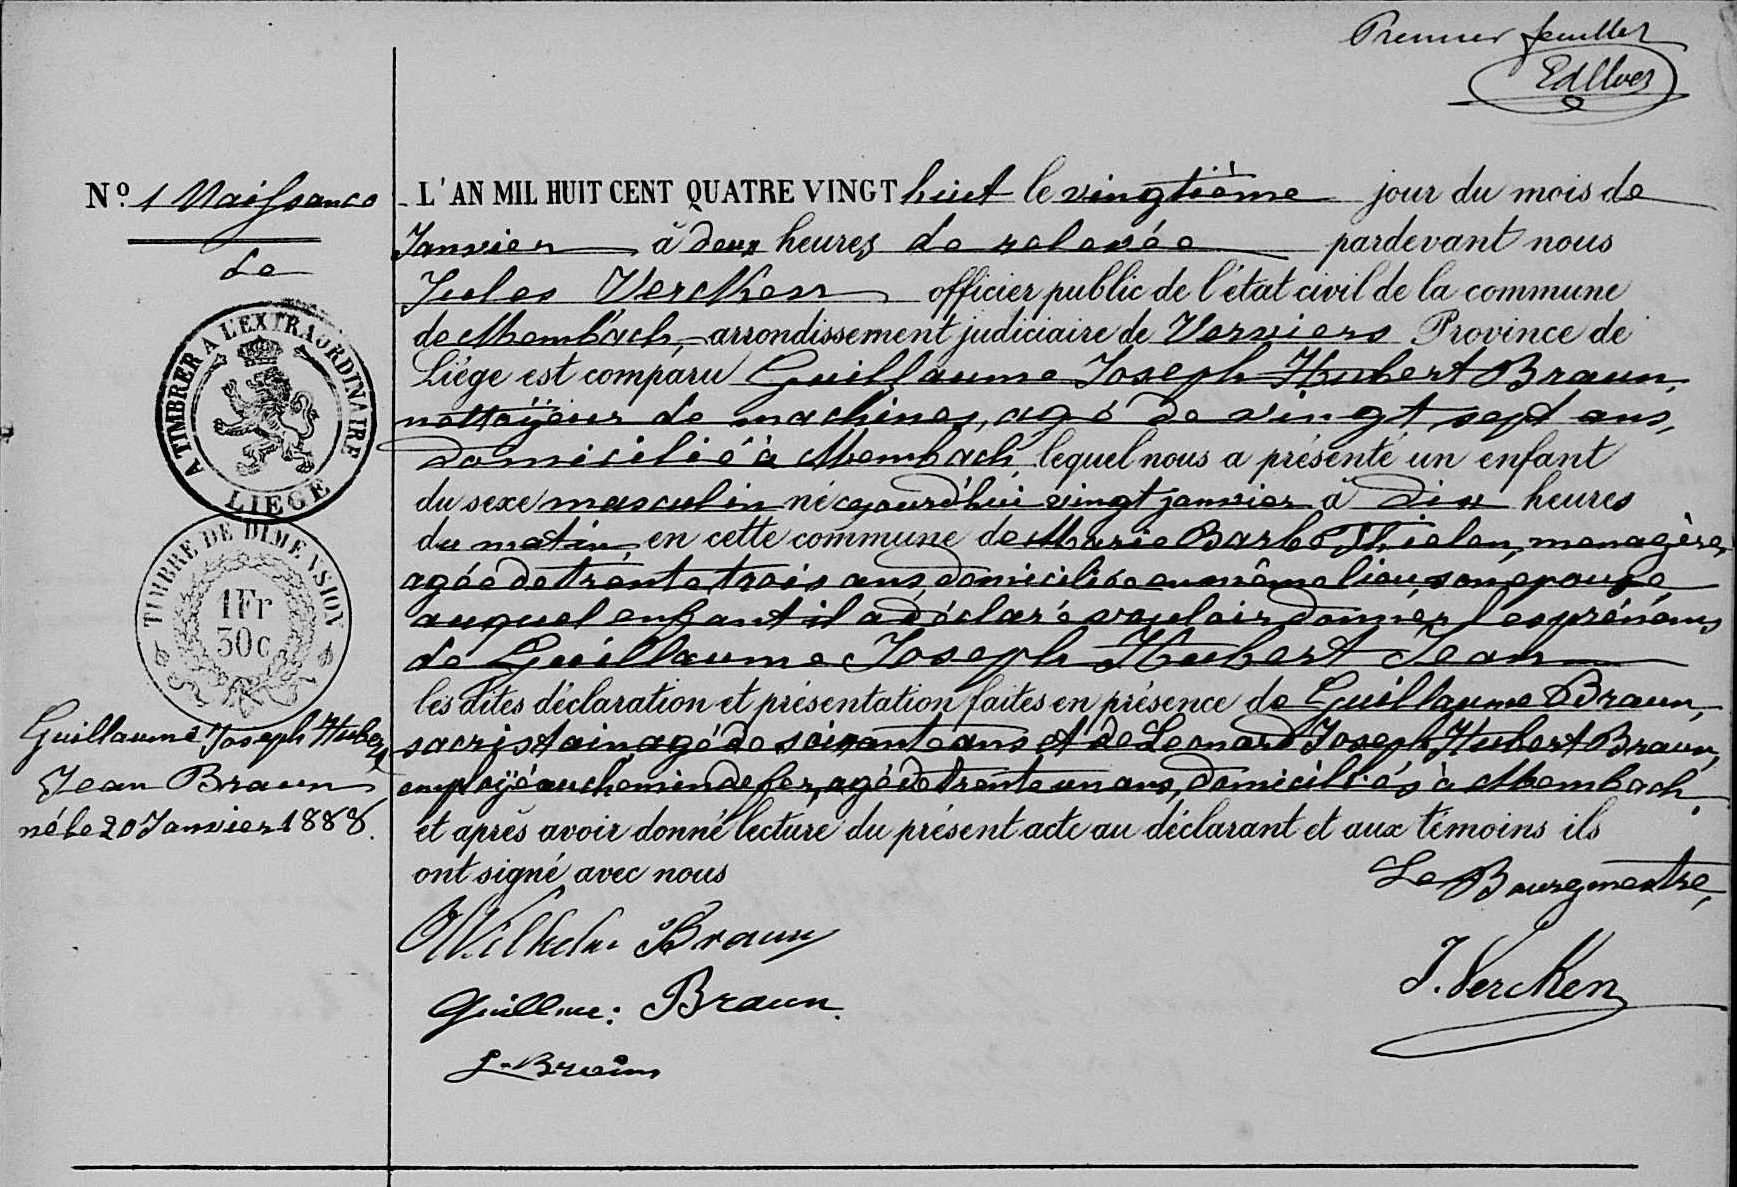 Premier feuillet
N.º 1 Naissance
de
A TIMBRER A L'EXTRAORDINAIRE
LIEGE
TIMBRE DE DIMENSION
1Fr
30c
Guillaume Joseph Hubert
Jean Braun
né le 20 Janvier 1888.
L'AN MIL HUIT CENT QUATRE VINGT huit le vingtième jour du mois de
Janvier à deux heures de relevée pardevant nous
Jules Vercken officier public de l'état civil de la commune
de Membach, arrondissement judiciaire de Verviers Province de
Liége est comparu Guillaume Joseph Hubert Braun,
nettoÿeur de machines, agé de vingt sept ans,
domicilié à Membach, lequel nous a présenté un enfant
du sexe masculin né cejourd'hui vingt janvier à dix heures
du matin, en cette commune de Marie Barbe Thielen, menagère,
agée de trente trois ans, domiciliée au même lieu, son epouse,
auquel enfant il a déclaré vouloir donner les prénoms
de Guillaume Joseph Hubert Jean
les dites déclaration et présentation faites en présence de Guillaume Braun,
sacristain agé de soixante ans et de Leonard Joseph Hubert Braun,
emploÿé au chemin de fer, agé de trente un ans, domiciliés à Membach.
et après avoir donné lecture du présent acte au déclarant et aux témoins ils
ont signé avec nous
Le Bourgmestre,
Wilhelm Braun
J. Vercken
Guillme: Braun.
L. Braun